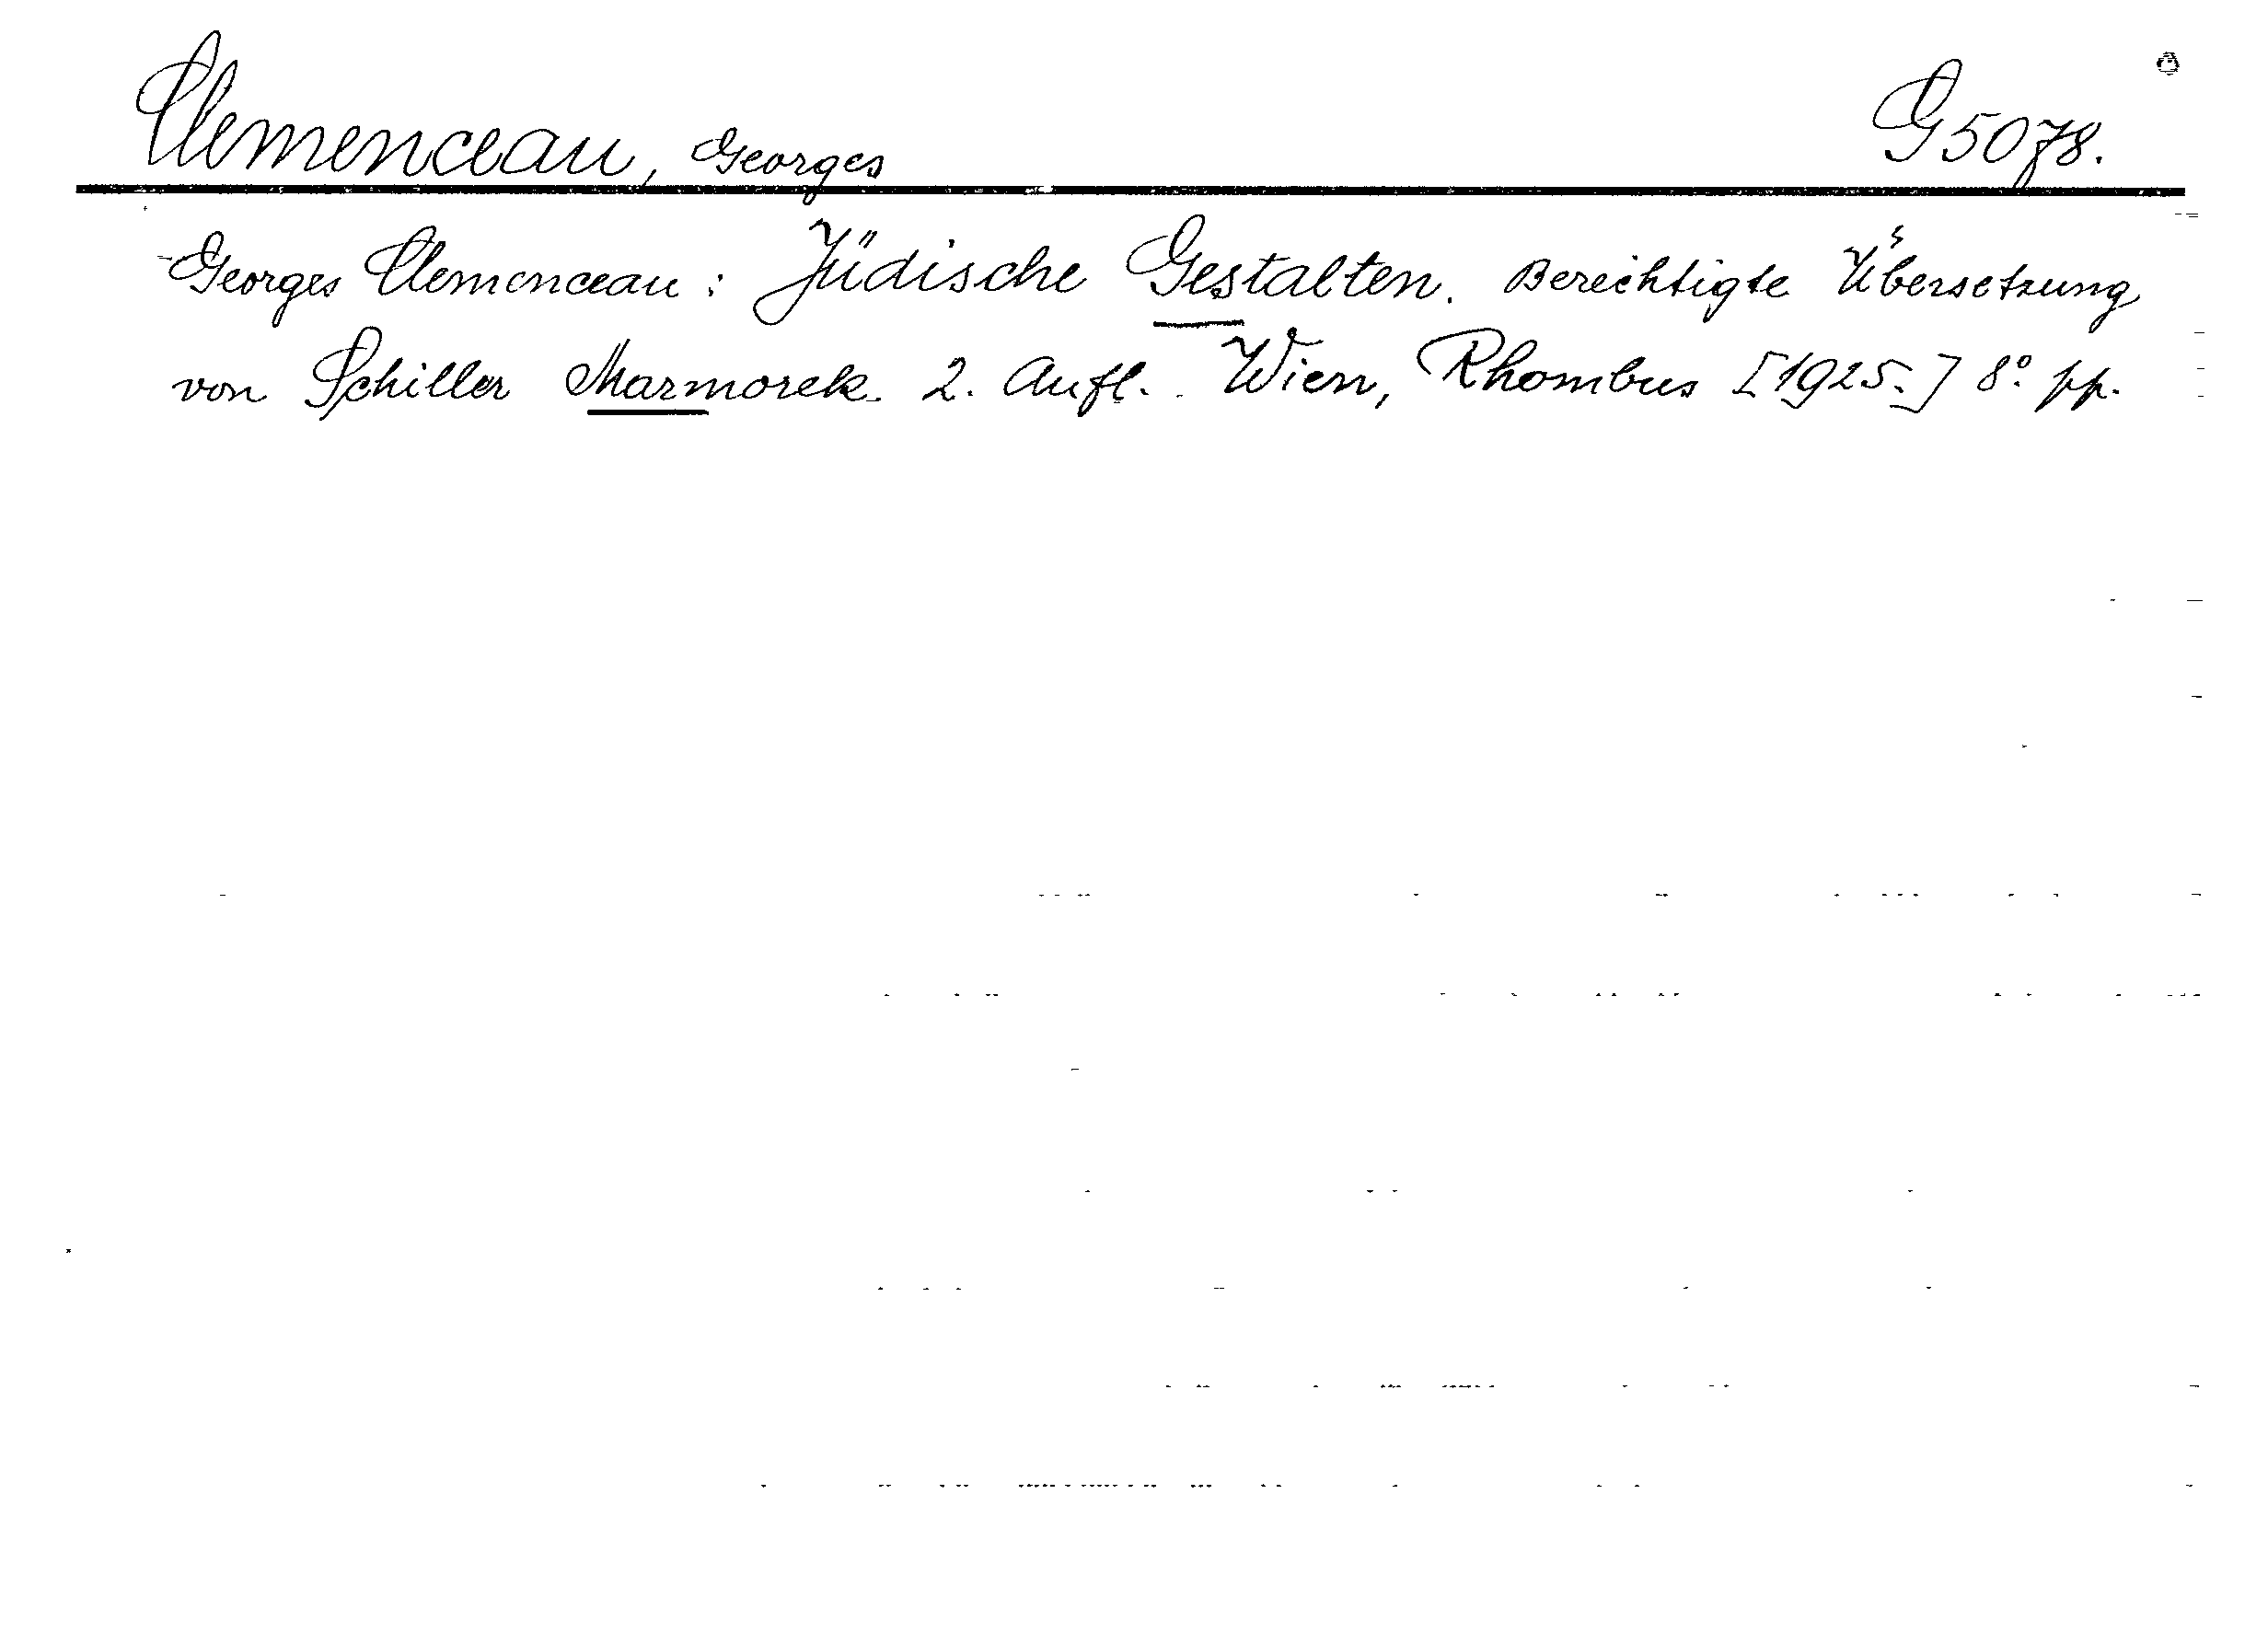 Clemenceau, Georges G5078.
Georges Clemenceau: Jüdische Gestalten. Berechtigte Übersetzung
von Schiller Marmorek. 2. Aufl. Wien, Rhombus [1925.] 8° pp.